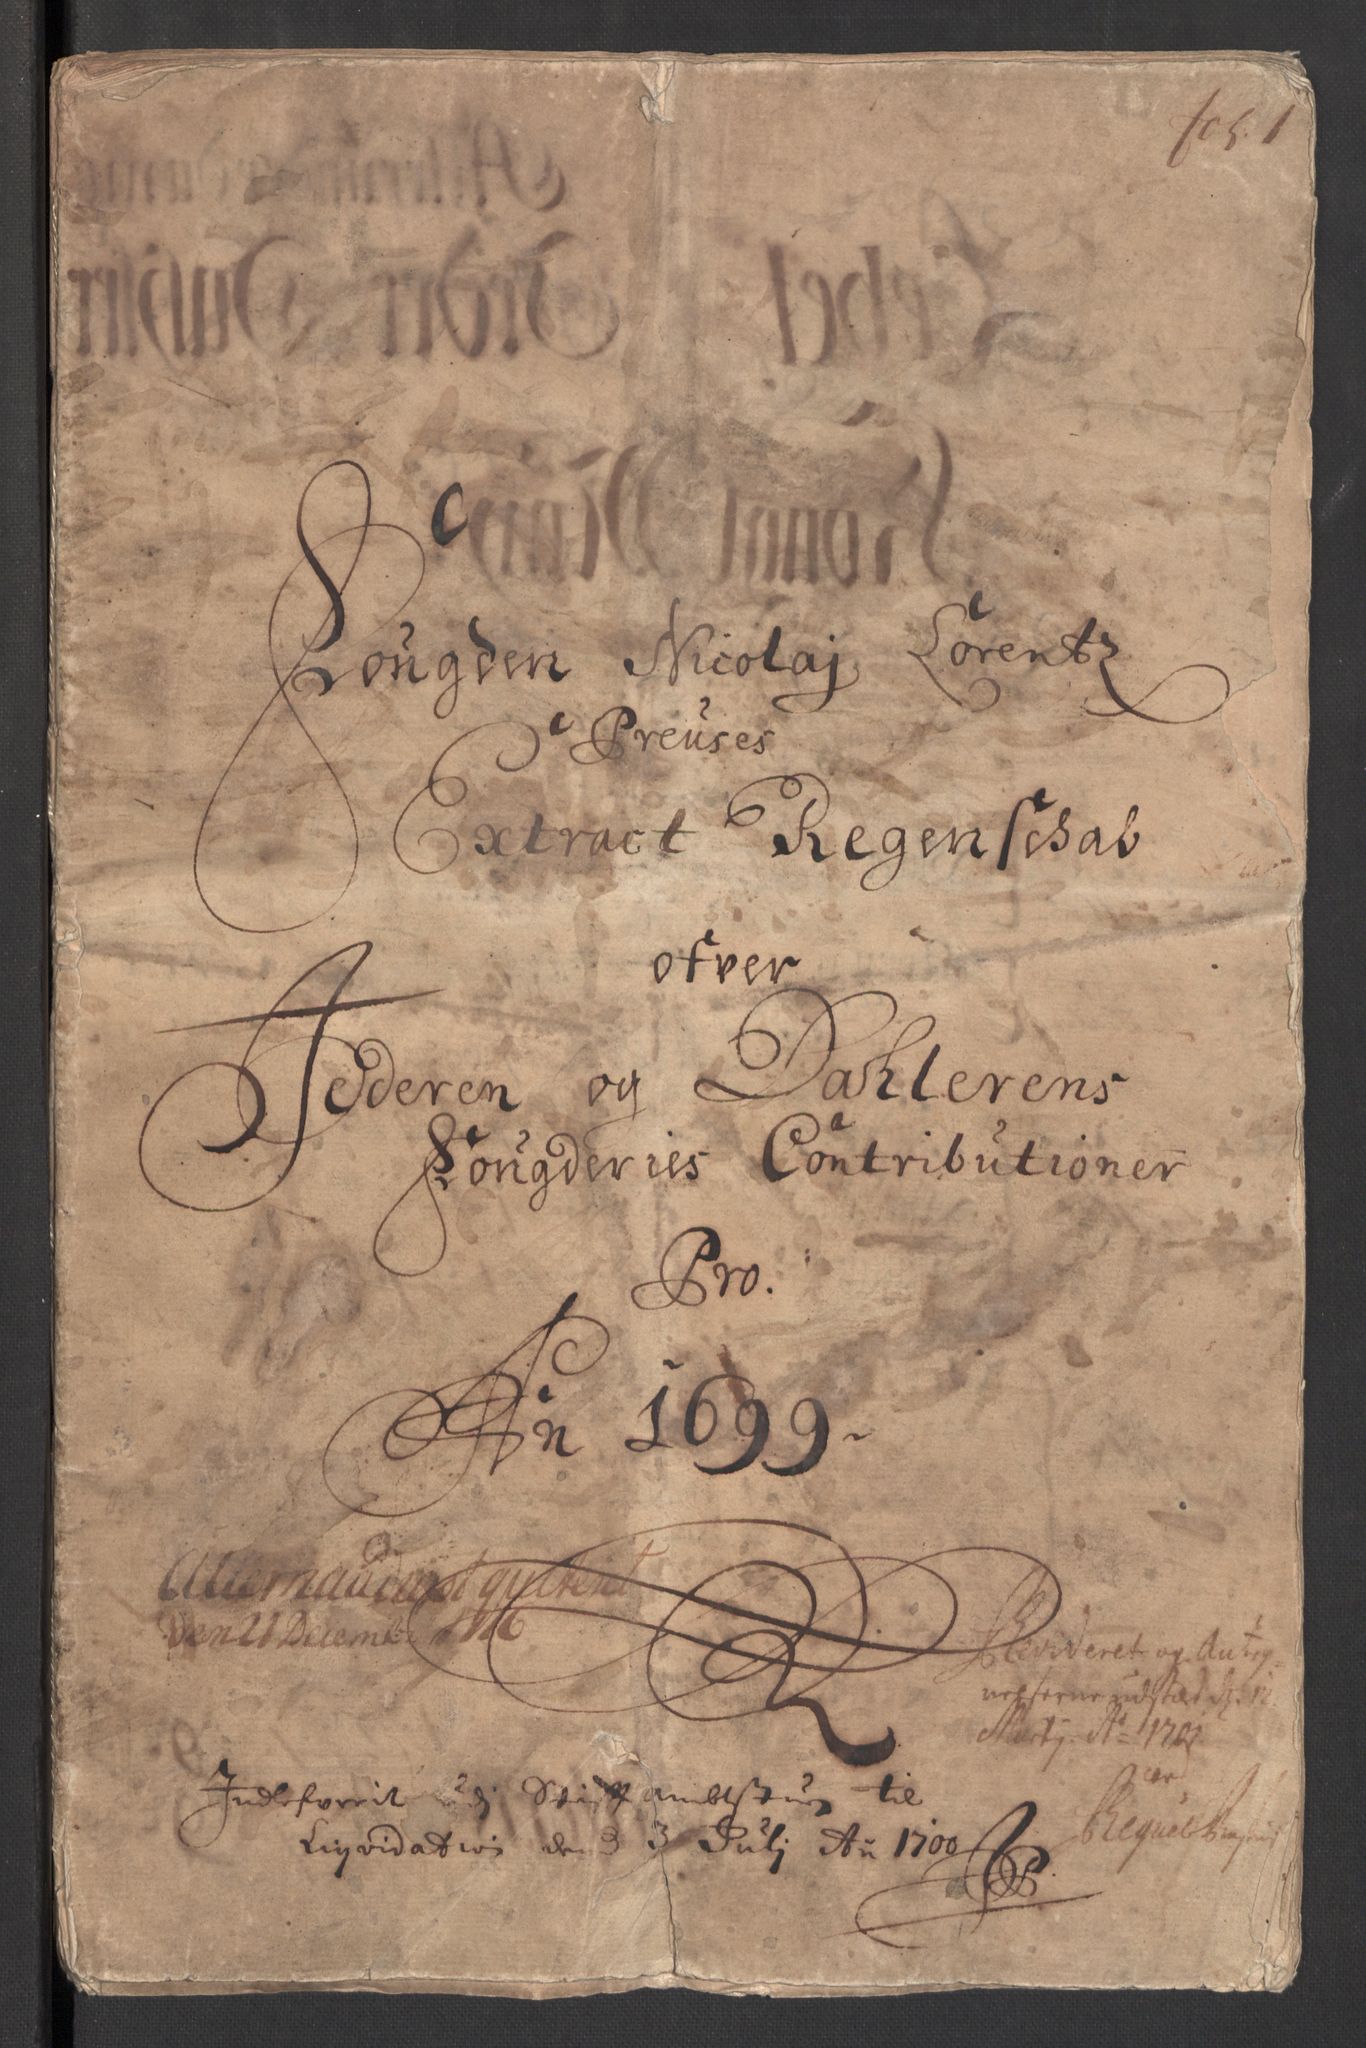 fol. 1
Fougden Nicolaj Lorentz
Preuses
Extract Regenschab
ofver
Jedderen og Dahlerens
Fougderies Contributioner
Pro.
An 1699
qvitert
den 21 Decemb.
Revideret og Anteg-
nelserne udstæd d. 12.
Martij Ao 1701
Indlefverit udj Stift Ambtstuen til
Liqvidation den 3 Julj An 1700